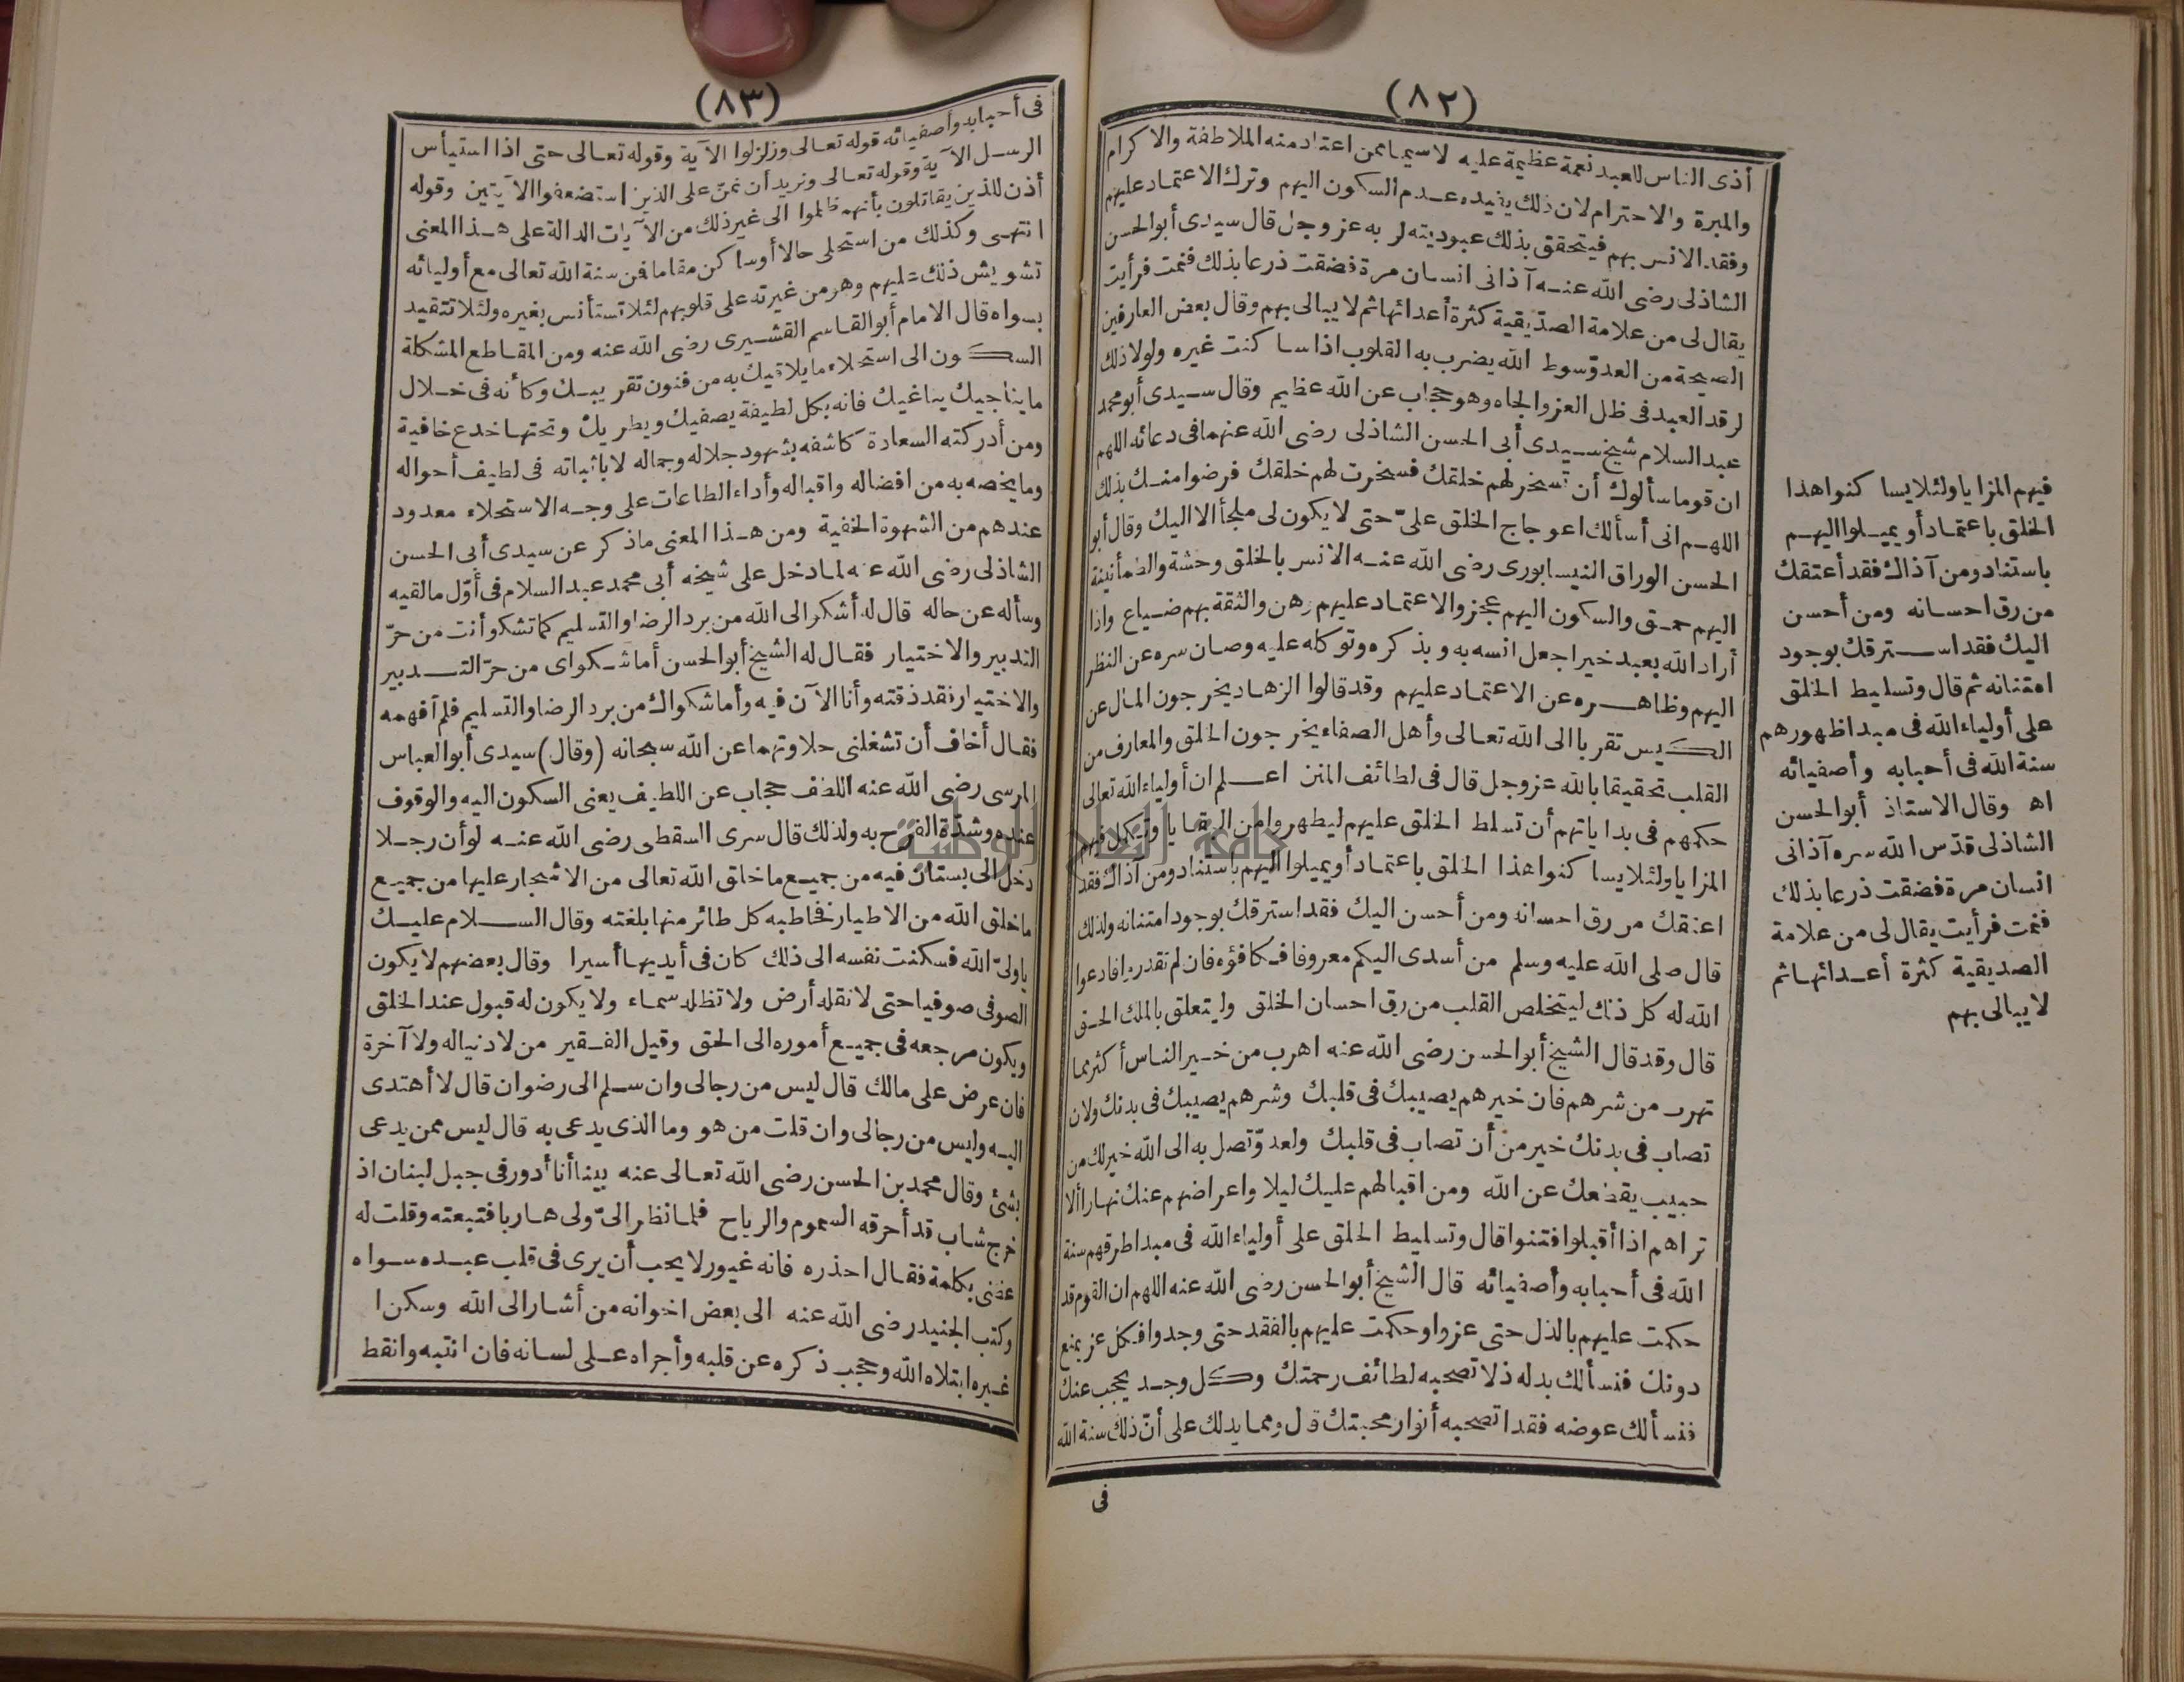 (٨٢)
أذى الناس للعبد نعمة عظيمة عليه لاسيما ممن اعتاد منه الملاطفة والاكرام
والمبرة والاحترام لان ذلك يفيده عدم السكون اليهم وترك الاعتماد عليهم
وفقد الانس بهم فيتحقق بذلك عبوديته لربه عز وجل قال سيدى أبو الحسن
الشاذلى رضى الله عنه آذانى انسان مرة فضقت ذرعا بذلك فنمت فرأيت
يقال لى من علامة الصدّيقية كثرة أعدائها ثم لا يبالى بهم وقال بعض العارفين
الصيحة من العدوّ سوط الله يضرب به القلوب اذا ساكنت غيره ولولا ذلك
لرقد العبد فى ظل العز والجاه وهو حجاب عن الله عظيم وقال سيدى أبو محمد
عبد السلام شيخ سيدى أبى الحسن الشاذلى رضى الله عنهما فى دعائه اللهم
ان قوما سألوك أن تسخر لهم خلقك فسخرت لهم خلقك فرضوا منك بذلك
اللهم انى أسألك اعوجاج الخلق علىّ حتى لا يكون لى ملجأ الا اليك وقال أبو
الحسن الوراق النيسابورى رضى الله عنه الانس بالخلق وحشة والطمأنينة
اليهم حمق والسكون اليهم عجز والاعتماد عليهم وهن والثقة بهم ضياع واذا
أراد الله بعبد خيرا جعل انسه به وبذكره وتوكله عليه وصان سره عن النظر
اليهم وظاهره عن الاعتماد عليهم وقد قالوا الزهاد يخرجون المال عن
الكيس تقربا الى الله تعالى وأهل الصفاء يخرجون الخلق والمعارف من
القلب تحقيقا بالله عز وجل قال فى لطائف المنن اعلم ان أولياء الله تعالى
حكمهم فى بداياتهم أن تسلط الخلق عليهم ليطهروا من البقايا وتكمل فيهم
المزايا ولئلا يساكنوا هذا الخلق باعتماد أو يميلوا اليهم باستناد ومن آذاك فقد
اعتقك من رق احسانه ومن أحسن اليك فقد استرقك بوجود امتنانه ولذلك
قال صلى الله عليه وسلم من أسدى اليكم معروفا فكافؤه فان لم تقدروا فادعوا
الله له كل ذلك ليتخلص القلب من رق احسان الخلق وليتعلق بالملك الحق
قال وقد قال الشيخ أبو الحسن رضى الله عنه اهرب من خير الناس أكثر مما
تهرب من شرهم فان خيرهم يصيبك فى قلبك وشرهم يصيبك فى بدنك ولان
تصاب فى بدنك خير من أن تصاب فى قلبك ولعدوّ تصل به الى الله خير لك من
حبيب يقطعك عن الله ومن اقبالهم عليك ليلا واعراضهم عنك نهارا ألا
تراهم اذا أقبلوا فتنوا قال وتسليط الخلق على أولياء الله فى مبدا طرقهم سنة
الله فى أحبابه وأصفيائه قال الشيخ أبو الحسن رضى الله عنه اللهم ان القوم قد
حكمت عليهم بالذل حتى عزوا وحكمت عليهم بالفقد حتى وجدوا فكل عز يمنع
دونك فنسألك بدله ذلا تصحبه لطائف رحمتك وكل وجد يحجب عنك
فنسألك عوضه فقدا تصحبه أنوار محبتك قال ومما يدلك على أنّ ذلك سنة الله
فى
فيهم المزايا ولئلا يساكنوا هذا
الخلق باعتماد أو يميلوا اليهم
باستناد ومن آذاك فقد أعتقك
من رق احسانه ومن أحسن
اليك فقد استرقك بوجود
امتنانه ثم قال وتسليط الخلق
على أولياء الله فى مبدا ظهورهم
سنة الله فى أحبابه وأصفيائه
اه وقال الاستاذ أبو الحسن
الشاذلى قدّس الله سره آذانى
انسان مرة فضقت ذرعا بذلك
فنمت فرأيت يقال لى من علامة
الصديقية كثرة أعدائها ثم
لا يبالى بهم
(٨٣)
فى أحبابه وأصفيائه قوله تعالى وزلزلوا الآية وقوله تعالى حتى اذا استيأس
الرسل الآية وقوله تعالى ونريد أن نمنّ على الذين استضعفوا الآيتين وقوله
أذن للذين يقاتلون بأنهم ظلموا الى غير ذلك من الآيات الدالة على هذا المعنى
انتهى وكذلك من استحلى حالا أو ساكن مقاما فمن سنة الله تعالى مع أوليائه
تشويش ذلك عليهم وهو من غيرته على قلوبهم لئلا تستأنس بغيره ولئلا تتقيد
بسواه قال الامام أبو القاسم القشيرى رضى الله عنه ومن المقاطع المشكلة
السكون الى استحلاء ما يلاقيك به من فنون تقريبك وكأنه فى خلال
ما يناجيك يناغيك فانه بكل لطيفة يصفيك ويطريك وتحتها خدع خافية
ومن أدركته السعادة كاشفه بشهود جلاله وجماله لا باثباته فى لطيف أحواله
وما يخصه به من افضاله واقباله وأداء الطاعات على وجه الاستحلاء معدود
عندهم من الشهوة الخفية ومن هذا المعنى ما ذكر عن سيدى أبى الحسن
الشاذلى رضى الله عنه لما دخل على شيخه أبى محمد عبد السلام فى أوّل ما لقيه
وسأله عن حاله قال له أشكو الى الله من برد الرضا والتسليم كما تشكو أنت من حرّ
التدبير والاختيار فقال له الشيخ أبو الحسن أما شكواى من حرّ التدبير
والاختيار فقد ذقته وأنا الآن فيه وأما شكواك من برد الرضا والتسليم فلم أفهمه
فقال أخاف أن تشغلنى حلاوتهما عن الله سبحانه (وقال) سيدى أبو العباس
المرسى رضى الله عنه اللطف حجاب عن اللطيف يعنى السكون اليه والوقوف
عنده وشدّة الفرح به ولذلك قال سرى السقطى رضى الله عنه لو أن رجلا
دخل الى بستان فيه من جميع ما خلق الله تعالى من الاشجار عليها من جميع
ما خلق الله من الاطيار فخاطبه كل طائر منها بلغته وقال السلام عليك
يا ولىّ الله فسكنت نفسه الى ذلك كان فى أيديها أسيرا وقال بعضهم لا يكون
الصوفى صوفيا حتى لا تقله أرض ولا تظله سماء ولا يكون له قبول عند الخلق
ويكون مرجعه فى جميع أموره الى الحق وقيل الفقير من لا دنيا له ولا آخرة
فان عرض على مالك قال ليس من رجالى وان سلم الى رضوان قال لا أهتدى
اليه وليس من رجالى وان قلت من هو وما الذى يدعى به قال ليس ممن يدعى
بشئ وقال محمد بن الحسن رضى الله تعالى عنه بينا أنا أدور فى جبل لبنان اذ
خرج شاب قد أحرقه السموم والرياح فلما نظر الىّ ولى هاربا فتبعته وقلت له
عظنى بكلمة فقال احذره فانه غيور لا يحب أن يرى فى قلب عبده سواه
وكتب الجنيد رضى الله عنه الى بعض اخوانه من أشار الى الله وسكن ا
غيره ابتلاه الله وحجب ذكره عن قلبه وأجراه على لسانه فان انتبه وانقط
جامعة النجاح الوطنية